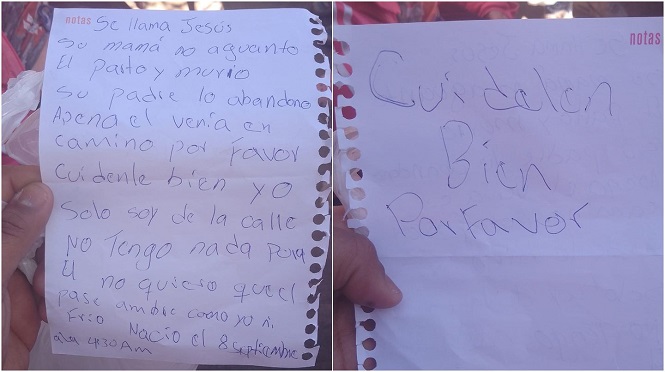 notas Se llama Jesús
su mamá no aguanto
El parto y murio
su padre lo abandono
Apena el venía en
camino por Favor
Cuidenle bien yo
Solo soy de la calle
No Tengo nada para
El no quieso que el
pase ambre como yo ni
Frio Nacio el 8 septiembre
a la 4:30 Am
notas
Cuidelen
Bien
Por Favor